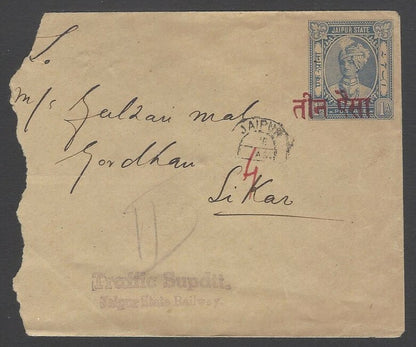 JAIPUR STATE
तीन पैसा
To.
M/s Gulzari mal
Gordhan
JAIPUR
4
Sikar
Traffic Supdtt.
Jaipur State Railway.